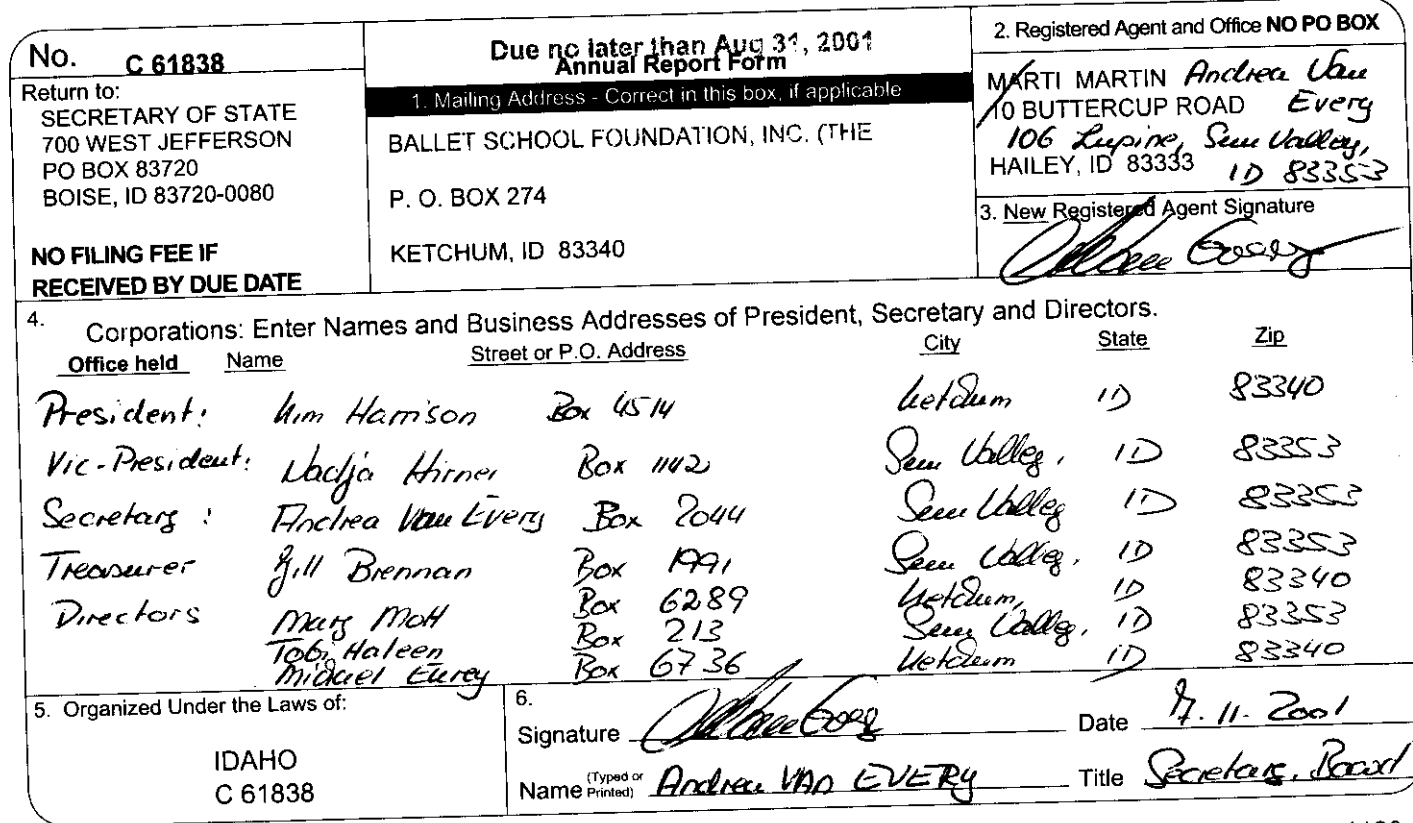 No. C 61838
Return to:
SECRETARY OF STATE
700 WEST JEFFERSON
PO BOX 83720
BOISE, ID 83720-0080
NO FILING FEE IF
RECEIVED BY DUE DATE
Due no later than Aug 31, 2001
Annual Report Form
1. Mailing Address - Correct in this box, if applicable
BALLET SCHOOL FOUNDATION, INC. (THE
P. O. BOX 274
KETCHUM, ID 83340
2. Registered Agent and Office NO PO BOX
MARTI MARTIN Andrea Van
10 BUTTERCUP ROAD Every
106 Lupine, Sun Valley,
HAILEY, ID 83333 ID 83353
3. New Registered Agent Signature
4. Corporations: Enter Names and Business Addresses of President, Secretary and Directors.
Office held Name Street or P.O. Address City State Zip
President: Kim Harrison Box 4514 Ketchum ID 83340
Vic-President: Nadja Hirner Box 1142 Sun Valley, ID 83353
Secretary: Andrea Van Every Box 2044 Sun Valley ID 83353
Treasurer Jill Brennan Box 1991 Sun Valley, ID 83353
Directors Mary Mott Box 6289 Ketchum, ID 83340
Tobi Haleen Box 213 Sun Valley, ID 83353
Michael Box 6736 Ketchum ID 83340
5. Organized Under the Laws of:
IDAHO
C 61838
6.
Signature Date 7.11.2001
Name (Typed or Printed) Andrea VAN EVERY Title Secretary, Board